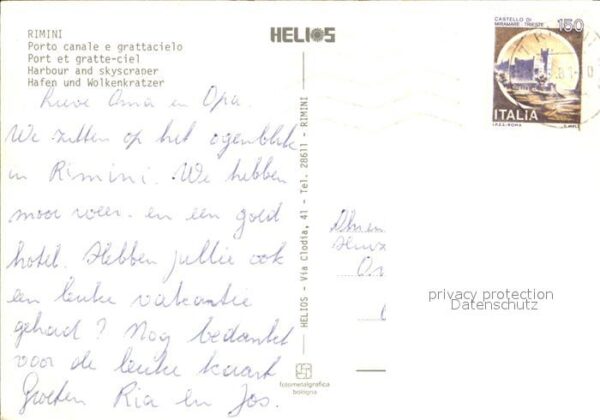 RIMINI
Porto canale e grattacielo
Port et gratte-ciel
Harbour and skyscraper
Hafen und Wolkenkratzer
Lieve Oma en Opa.
We zitten op het ogenblik
in Rimini. We hebben
mooi weer en een goed
hotel. Hebben jullie ook
een leuke vakantie
gehad? Nog bedankt
voor de leuke kaart
Groeten Ria en Jos.
HELIOS
HELIOS - Via Clodia, 41 - Tel. 28611 - RIMINI
fotometalgrafica
bologna
CASTELLO DI
MIRAMARE TRIESTE
150
ITALIA
privacy protection
Datenschutz